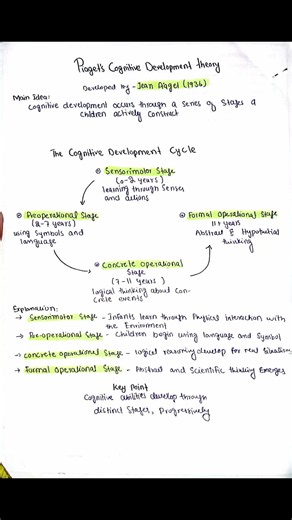 Piaget's Cognitive Development theory
Developed by - Jean Piaget (1936)
Main Idea:
Cognitive development occurs through a series of stages a
children actively construct
The Cognitive Development Cycle
Sensorimotor Stage
(0-2 years)
learning through senses
and actions
Preoperational Stage
(2-7 years)
using symbols and
language
Formal Operational Stage
11+ years
Abstract & Hypothetical
thinking
Concrete Operational
Stage
(7-11 years)
logical thinking about Con-
crete events
Explanation:
→ Sensorimotor Stage - Infants learn through Physical Interaction with
the Environment
→ Pre-operational Stage - Children begin using language and Symbol
→ Concrete operational Stage - logical reasoning develop for real Situations
→ Formal Operational Stage - Abstract and Scientific thinking Emerges
Key Point
Cognitive abilities develop through
distinct Stages, Progressively